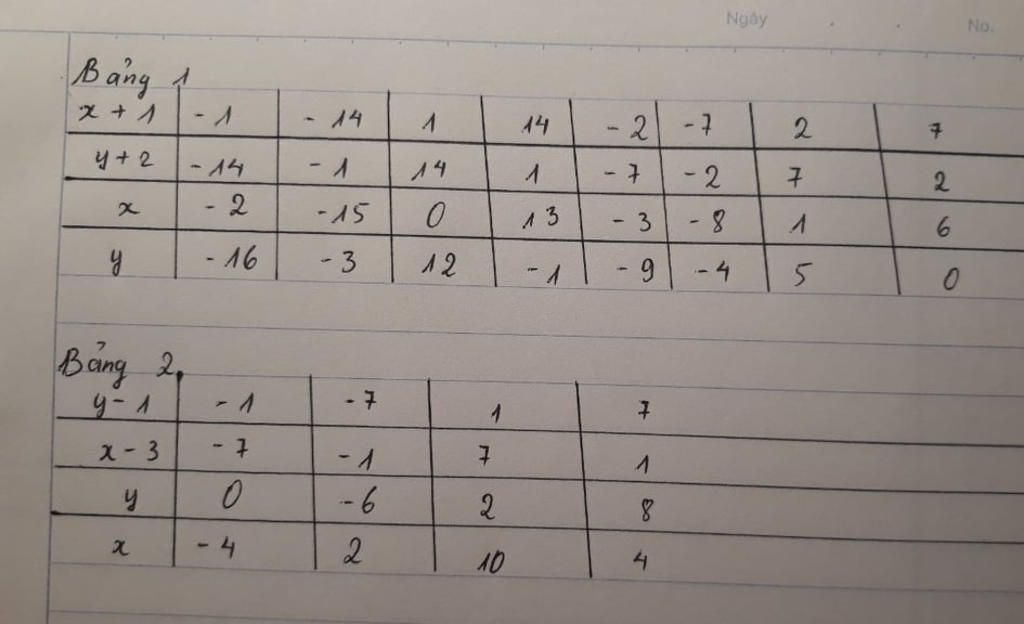 Ngày . . No.
Bảng 1
x + 1 - 1 - 14 1 14 - 2 - 7 2 7
y + 2 - 14 - 1 14 1 - 7 - 2 7 2
x - 2 - 15 0 13 - 3 - 8 1 6
y - 16 - 3 12 - 1 - 9 - 4 5 0
Bảng 2.
y - 1 - 1 - 7 1 7
x - 3 - 7 - 1 7 1
y 0 - 6 2 8
x - 4 2 10 4